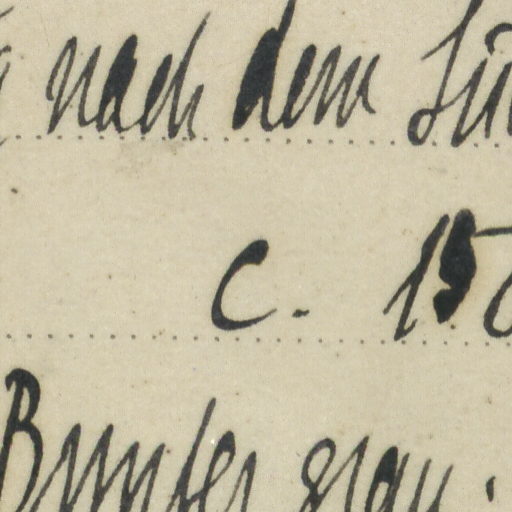 nach dem
c. 15
Bunter grau.